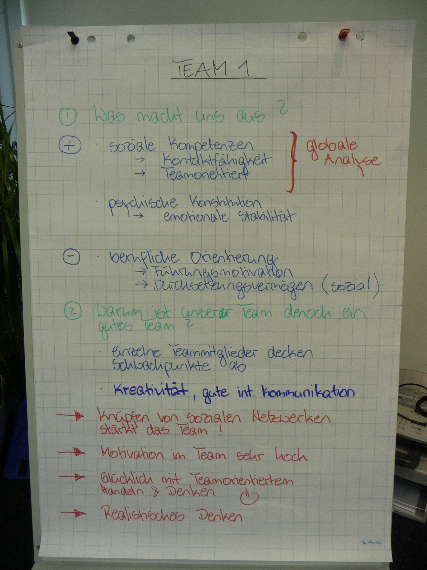 TEAM 1
① Was macht uns aus?
⊕ · soziale Kompetenzen
→ Kontaktfähigkeit
→ Teamorientiert
globale
Analyse
· psychische Konstitution
→ emotionale Stabilität
⊖ · berufliche Orientierung
→ Führungsmotivation
→ Durchsetzungsvermögen (sozial)
② Warum ist unser Team denoch ein
gutes Team?
· einzelne Teammitglieder decken
Schwachpunkte ab
· Kreativität, gute int. Kommunikation
→ Knüpfen von sozialen Netzwerken
stärkt das Team!
→ Motivation im Team sehr hoch
→ Glücklich mit Teamorientiertem
Handeln & Denken
→ Realistisches Denken